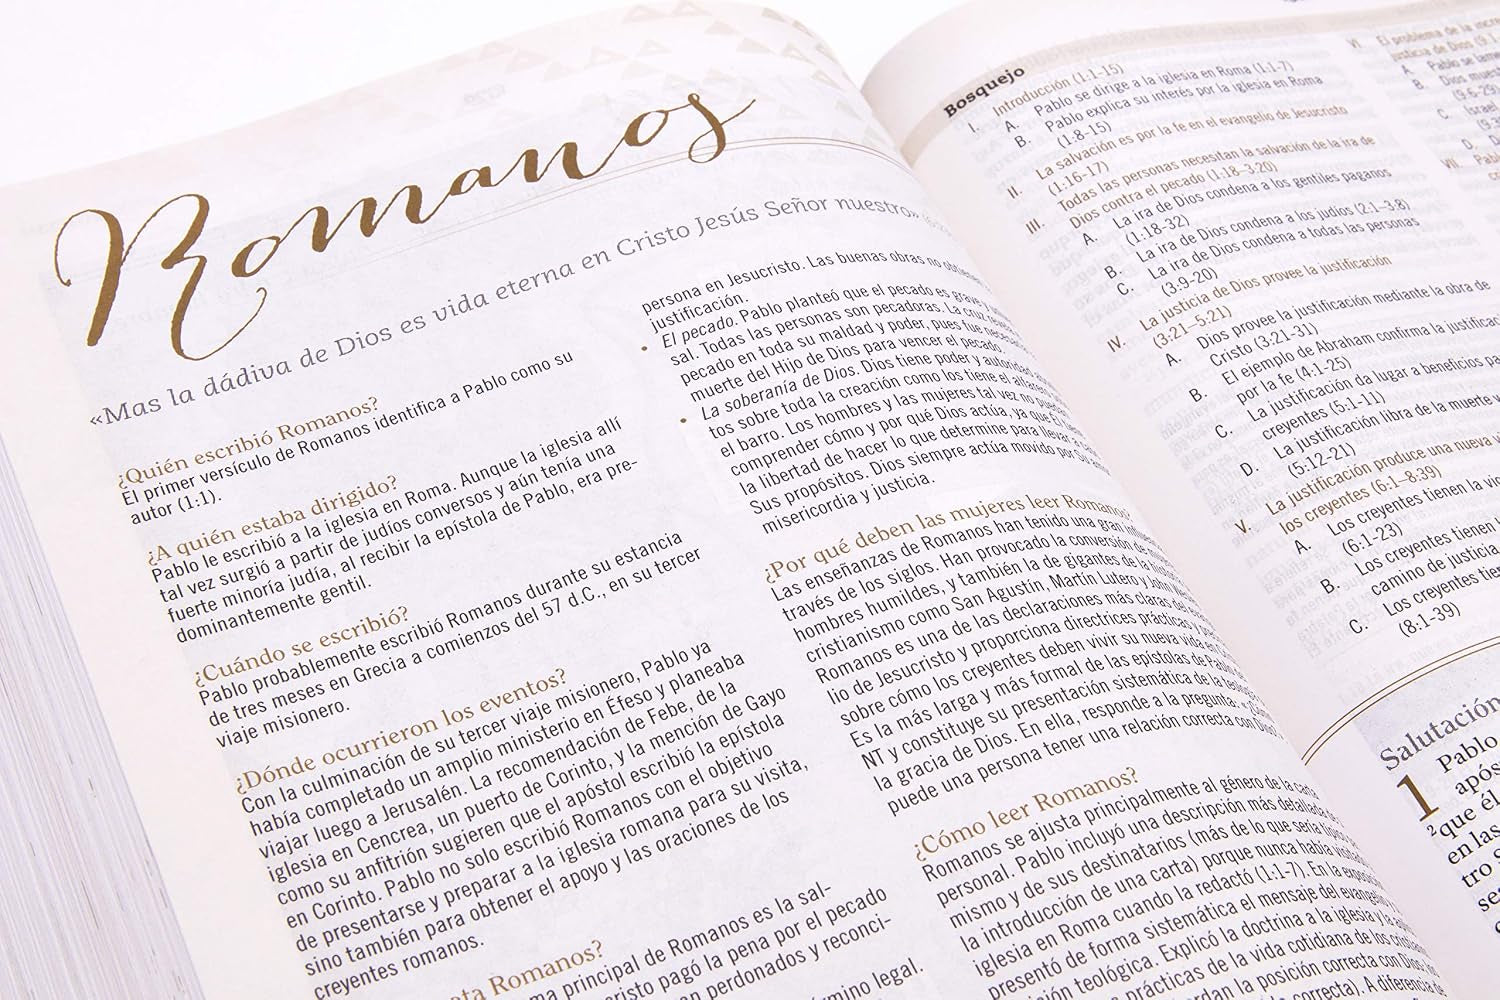 Romanos
«Mas la dádiva de Dios es vida eterna en Cristo Jesús Señor nuestro»
¿Quién escribió Romanos?
El primer versículo de Romanos identifica a Pablo como su
autor (1:1).
¿A quién estaba dirigido?
Pablo le escribió a la iglesia en Roma. Aunque la iglesia allí
tal vez surgió a partir de judíos conversos y aún tenía una
fuerte minoría judía, al recibir la epístola de Pablo, era pre-
dominantemente gentil.
¿Cuándo se escribió?
Pablo probablemente escribió Romanos durante su estancia
de tres meses en Grecia a comienzos del 57 d.C., en su tercer
viaje misionero.
¿Dónde ocurrieron los eventos?
Con la culminación de su tercer viaje misionero, Pablo ya
había completado un amplio ministerio en Éfeso y planeaba
viajar luego a Jerusalén. La recomendación de Febe, de la
iglesia en Cencrea, un puerto de Corinto, y la mención de Gayo
como su anfitrión sugieren que el apóstol escribió la epístola
en Corinto. Pablo no solo escribió Romanos con el objetivo
de presentarse y preparar a la iglesia romana para su visita,
sino también para obtener el apoyo y las oraciones de los
creyentes romanos.
ata Romanos?
ma principal de Romanos es la sal-
cristo pagó la pena por el pecado
an perdonados y reconci-
rmino legal.
persona en Jesucristo. Las buenas obras no
justificación.
• El pecado. Pablo planteó que el pecado es grave y
sal. Todas las personas son pecadoras. La cruz
pecado en toda su maldad y poder, pues fue
muerte del Hijo de Dios para vencer el pecado.
• La soberanía de Dios. Dios tiene poder y autoridad
tos sobre toda la creación como los tiene el
el barro. Los hombres y las mujeres tal vez no
comprender cómo y por qué Dios actúa, ya que Él
la libertad de hacer lo que determine para llevar a
Sus propósitos. Dios siempre actúa movido por Su
misericordia y justicia.
¿Por qué deben las mujeres leer Romanos?
Las enseñanzas de Romanos han tenido una gran
través de los siglos. Han provocado la conversión de
hombres humildes, y también la de gigantes de la
cristianismo como San Agustín, Martín Lutero y John
Romanos es una de las declaraciones más claras del
lio de Jesucristo y proporciona directrices prácticas
sobre cómo los creyentes deben vivir su nueva vida en
Es la más larga y más formal de las epístolas de Pablo
NT y constituye su presentación sistemática de la
la gracia de Dios. En ella, responde a la pregunta:
puede una persona tener una relación correcta con
¿Cómo leer Romanos?
Romanos se ajusta principalmente al género de la carta
personal. Pablo incluyó una descripción más detallada de
mismo y de sus destinatarios (más de lo que sería
la introducción de una carta) porque nunca había
iglesia en Roma cuando la redactó (1:1-7). En la
presentó de forma sistemática el mensaje del
ición teológica. Explicó la doctrina a la iglesia y
s prácticas de la vida cotidiana de los
ordan la posición correcta con Dios
Romanos). A diferencia de
Bosquejo
I. Introducción (1:1-15)
A. Pablo se dirige a la iglesia en Roma (1:1-7)
B. Pablo explica su interés por la iglesia en Roma
(1:8-15)
II. La salvación es por la fe en el evangelio de Jesucristo
(1:16-17)
III. Todas las personas necesitan la salvación de la ira de
Dios contra el pecado (1:18–3:20)
A. La ira de Dios condena a los gentiles paganos
(1:18-32)
B. La ira de Dios condena a los judíos (2:1–3:8)
C. La ira de Dios condena a todas las personas
(3:9-20)
IV. La justicia de Dios provee la justificación
(3:21–5:21)
A. Dios provee la justificación mediante la obra de
Cristo (3:21-31)
B. El ejemplo de Abraham confirma la
por la fe (4:1-25)
C. La justificación da lugar a beneficios
creyentes (5:1-11)
D. La justificación libra de la muerte y
(5:12-21)
V. La justificación produce una nueva
los creyentes (6:1–8:39)
A. Los creyentes tienen la
(6:1-23)
B. Los creyentes tienen
camino de justicia
C. Los creyentes
(8:1-39)
VI. El problema de la
justicia de Dios
A. Pablo se
B. Dios
C. Israel
D.
VII.
Salutación
1 Pablo
2 que él
en las
tro